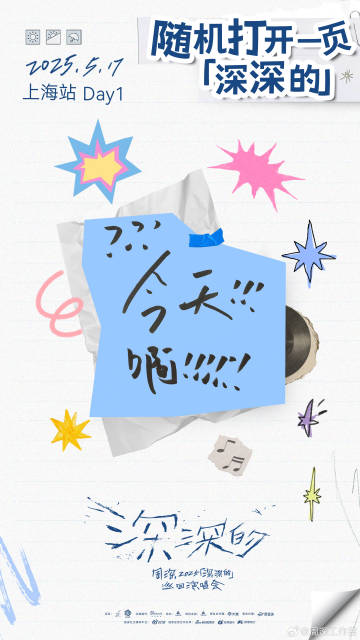 2025.5.17
上海站 Day1
随机打开一页
「深深的」
???
今天!!!
啊!!!!!!
深深的
周深2025「深深的」
巡回演唱会